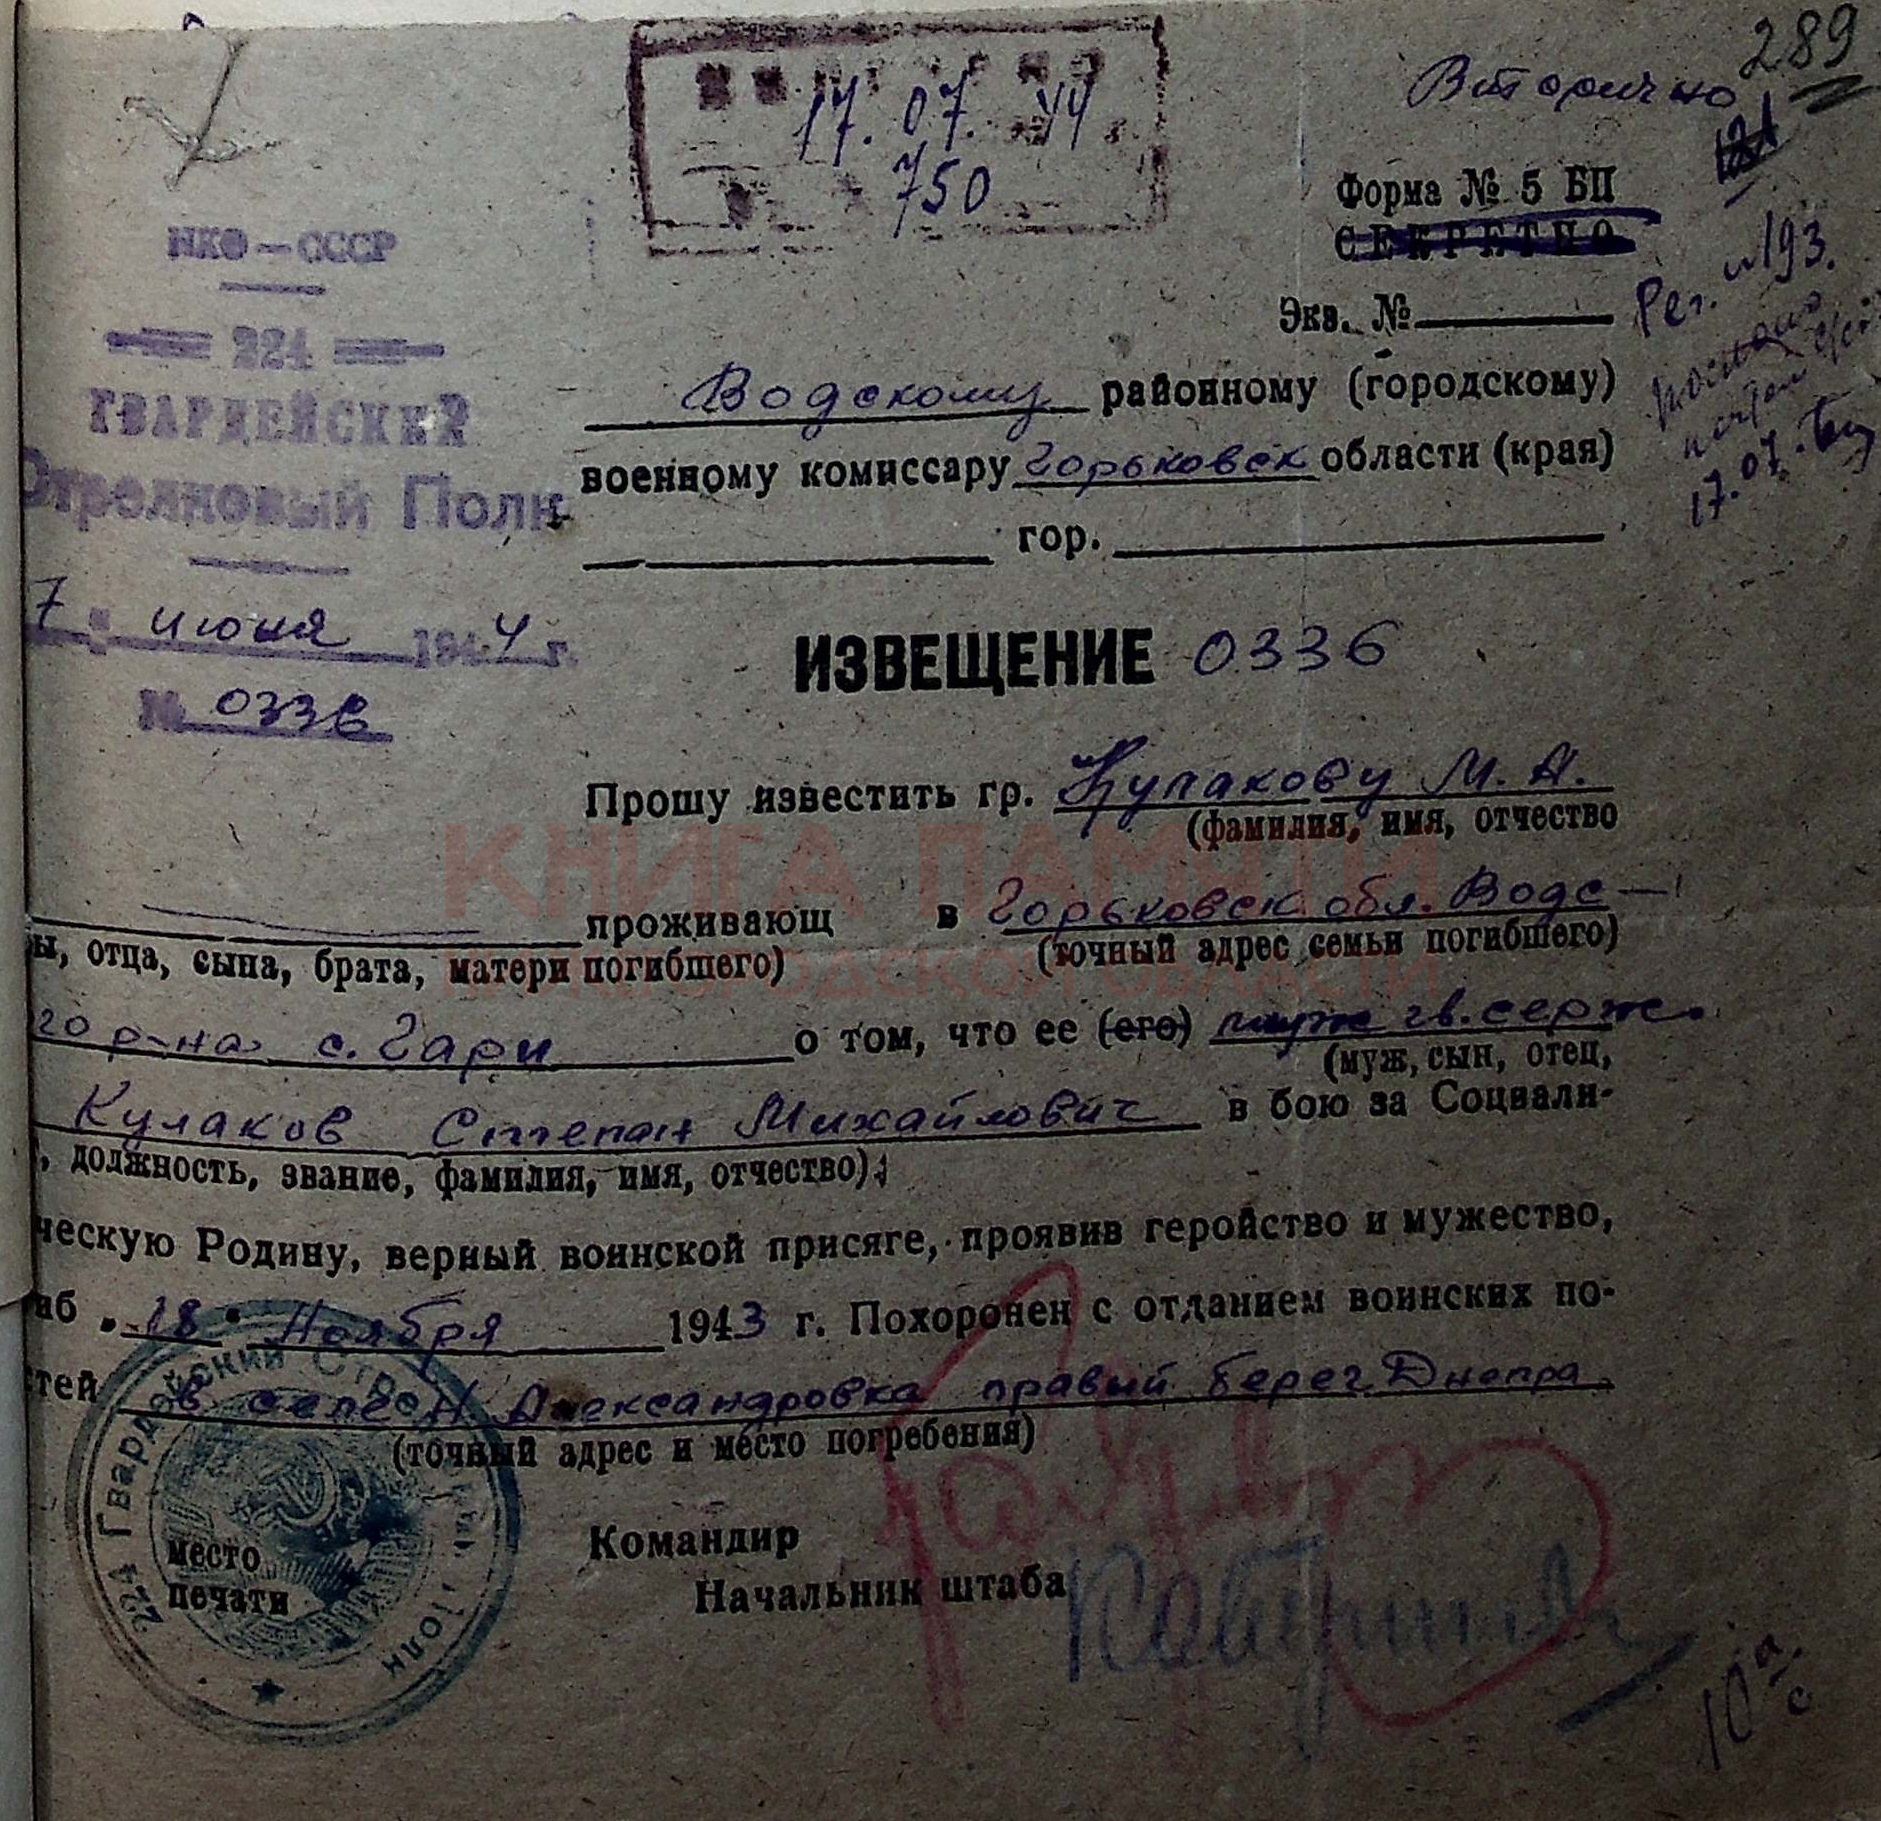 Вторично
289
17.07.44.
750
Форма № 5 БП
СЕКРЕТНО
Экз. №
Рег. №193.
17.07.
НКО — СССР
224
ГВАРДЕЙСКИЙ
Стрелковый Полк
7 " июня 1944 г.
№ 0336
Водскому районному (городскому)
военному комиссару Горьковск области (края)
гор.
ИЗВЕЩЕНИЕ 0336
Прошу известить гр. Кулакову М. А.
(фамилия, имя, отчество
проживающ в Горьковск. обл. Водс-
ы, отца, сына, брата, матери погибшего) (точный адрес семьи погибшего)
го р-на с. Гари о том, что ее (его) муж гв. серж.
(муж, сын, отец,
Кулаков Степан Михайлович в бою за Социали-
, должность, звание, фамилия, имя, отчество)
ческую Родину, верный воинской присяге, проявив геройство и мужество,
иб „ 18 " Ноября 1943 г. Похоронен с отданием воинских по-
стей в селе Н. Александровка правый берег Днепра
(точный адрес и место погребения)
Командир
Начальник штаба
место
печати
224 Гвардейский Стр Полк
КНИГА ПАМЯТИ
НИЖЕГОРОДСКОЙ ОБЛАСТИ